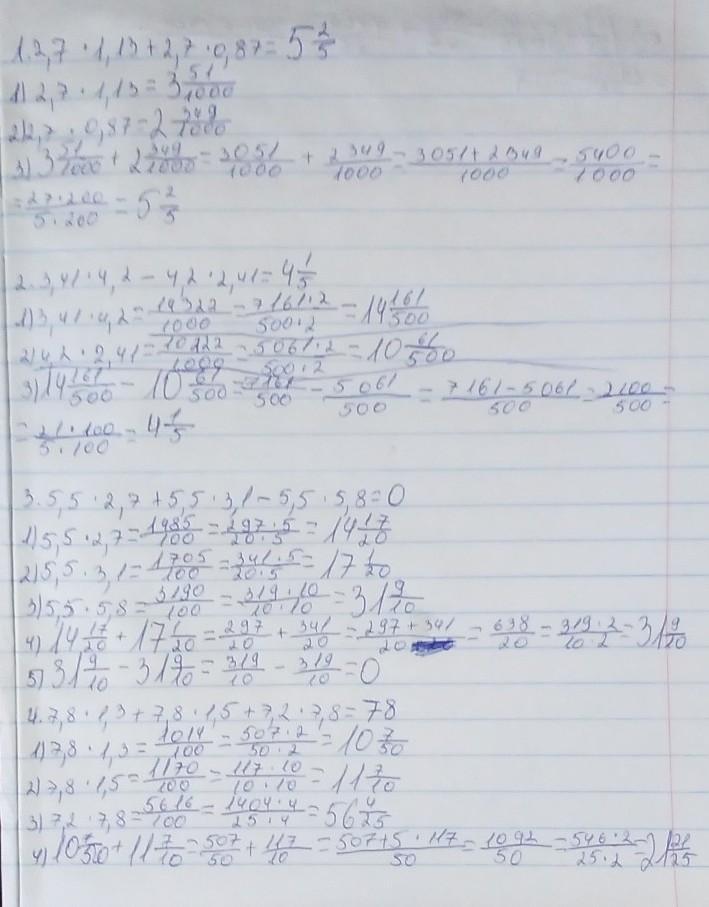 1. 2,7 · 1,13 + 2,7 · 0,87 = 5 2/5
1) 2,7 · 1,13 = 3 51/1000
2) 2,7 · 0,87 = 2 349/1000
3) 3 51/1000 + 2 349/1000 = 3051/1000 + 2349/1000 = 3051+2349/1000 = 5400/1000 =
= 27·200/5·200 = 5 2/5
2. 3,41 · 4,2 − 4,2 · 2,41 = 4 1/5
1) 3,41 · 4,2 = 14322/1000 = 7161·2/500·2 = 14 161/500
2) 4,2 · 2,41 = 10122/1000 = 5061·2/500·2 = 10 61/500
3) 14 161/500 − 10 61/500 = 7161/500 − 5061/500 = 7161−5061/500 = 2100/500 =
= 21·100/5·100 = 4 1/5
3. 5,5 · 2,7 + 5,5 · 3,1 − 5,5 · 5,8 = 0
1) 5,5 · 2,7 = 1485/100 = 297·5/20·5 = 14 17/20
2) 5,5 · 3,1 = 1705/100 = 341·5/20·5 = 17 1/20
3) 5,5 · 5,8 = 3190/100 = 319·10/10·10 = 31 9/10
4) 14 17/20 + 17 1/20 = 297/20 + 341/20 = 297+341/20 = 638/20 = 319·2/10·2 = 31 9/10
5) 31 9/10 − 31 9/10 = 319/10 − 319/10 = 0
4. 7,8 · 1,3 + 7,8 · 1,5 + 7,2 · 7,8 = 78
1) 7,8 · 1,3 = 1014/100 = 507·2/50·2 = 10 7/50
2) 7,8 · 1,5 = 1170/100 = 117·10/10·10 = 11 7/10
3) 7,2 · 7,8 = 5616/100 = 1404·4/25·4 = 56 4/25
4) 10 7/50 + 11 7/10 = 507/50 + 117/10 = 507+5·117/50 = 1092/50 = 546·2/25·2 = 21 21/25